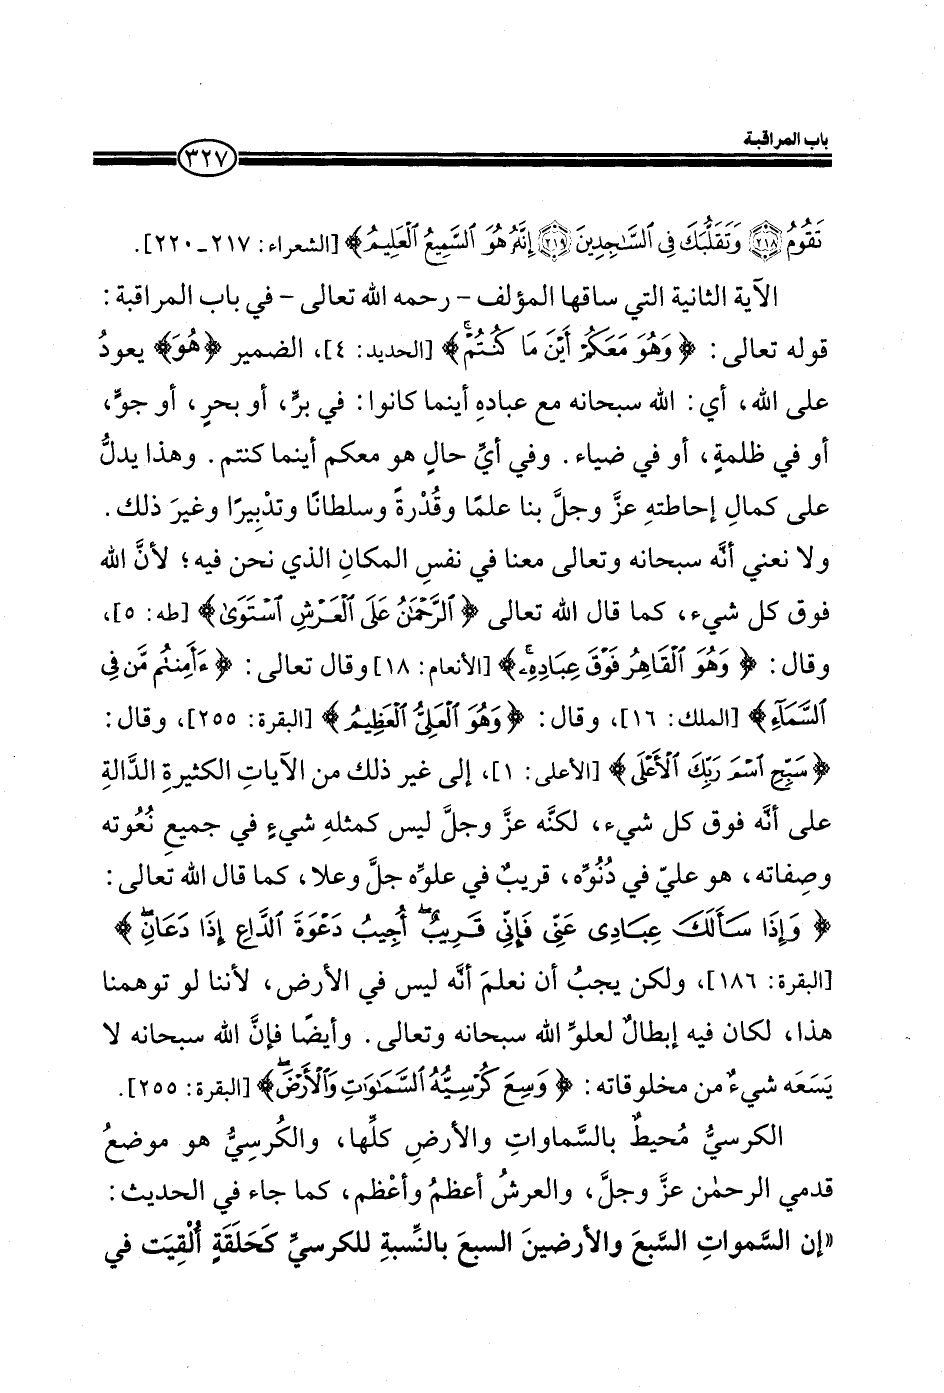 باب المراقبة
٣٢٧
تَقُومُ ﴿٢١٨﴾ وَتَقَلُّبَكَ فِي ٱلسَّٰجِدِينَ ﴿٢١٩﴾ إِنَّهُۥ هُوَ ٱلسَّمِيعُ ٱلْعَلِيمُ﴾ [الشعراء: ٢١٧ـ٢٢٠].
الآية الثانية التي ساقها المؤلف - رحمه الله تعالى - في باب المراقبة:
قوله تعالى: ﴿وَهُوَ مَعَكُمْ أَيْنَ مَا كُنتُمْ﴾ [الحديد: ٤]، الضمير ﴿هُوَ﴾ يعودُ
على الله، أي: الله سبحانه مع عبادهِ أينما كانوا: في برٍّ، أو بحرٍ، أو جوٍّ،
أو في ظلمةٍ، أو في ضياء. وفي أيِّ حالٍ هو معكم أينما كنتم. وهذا يدلُّ
على كمالِ إحاطتهِ عزَّ وجلَّ بنا علمًا وقُدْرةً وسلطانًا وتدْبِيرًا وغيرَ ذلك.
ولا نعني أنَّه سبحانه وتعالى معنا في نفسِ المكانِ الذي نحن فيه؛ لأنَّ الله
فوق كل شيء، كما قال الله تعالى ﴿ٱلرَّحْمَٰنُ عَلَى ٱلْعَرْشِ ٱسْتَوَىٰ﴾ [طه: ٥]،
وقال: ﴿وَهُوَ ٱلْقَاهِرُ فَوْقَ عِبَادِهِۦ﴾ [الأنعام: ١٨] وقال تعالى: ﴿ءَأَمِنتُم مَّن فِي
ٱلسَّمَآءِ﴾ [الملك: ١٦]، وقال: ﴿وَهُوَ ٱلْعَلِيُّ ٱلْعَظِيمُ﴾ [البقرة: ٢٥٥]، وقال:
﴿سَبِّحِ ٱسْمَ رَبِّكَ ٱلْأَعْلَى﴾ [الأعلى: ١]، إلى غير ذلك من الآياتِ الكثيرةِ الدَّالةِ
على أنَّه فوق كل شيء، لكنَّه عزَّ وجلَّ ليس كمثلهِ شيءٍ في جميعِ نُعُوته
وصِفاته، هو عليّ في دُنُوِّه، قريبٌ في علوِّه جلَّ وعلا، كما قال الله تعالى:
﴿وَإِذَا سَأَلَكَ عِبَادِى عَنِّى فَإِنِّى قَرِيبٌ ۖ أُجِيبُ دَعْوَةَ ٱلدَّاعِ إِذَا دَعَانِ ۖ﴾
[البقرة: ١٨٦]، ولكن يجبُ أن نعلمَ أنَّه ليس في الأرض، لأننا لو توهمنا
هذا، لكان فيه إبطالٌ لعلوِّ الله سبحانه وتعالى. وأيضًا فإنَّ الله سبحانه لا
يَسَعَه شيءٌ من مخلوقاته: ﴿وَسِعَ كُرْسِيُّهُ ٱلسَّمَٰوَٰتِ وَٱلْأَرْضَ ۖ﴾ [البقرة: ٢٥٥].
الكرسيُّ مُحيطٌ بالسَّماواتِ والأرضِ كلِّها، والكُرسِيُّ هو موضعُ
قدمي الرحمٰن عزَّ وجلَّ، والعرشُ أعظمُ وأعْظم، كما جاء في الحديث:
«إن السَّمواتِ السَّبعَ والأرضينَ السبعَ بالنِّسبةِ للكرسيِّ كَحَلَقَةٍ أُلْقِيَت في